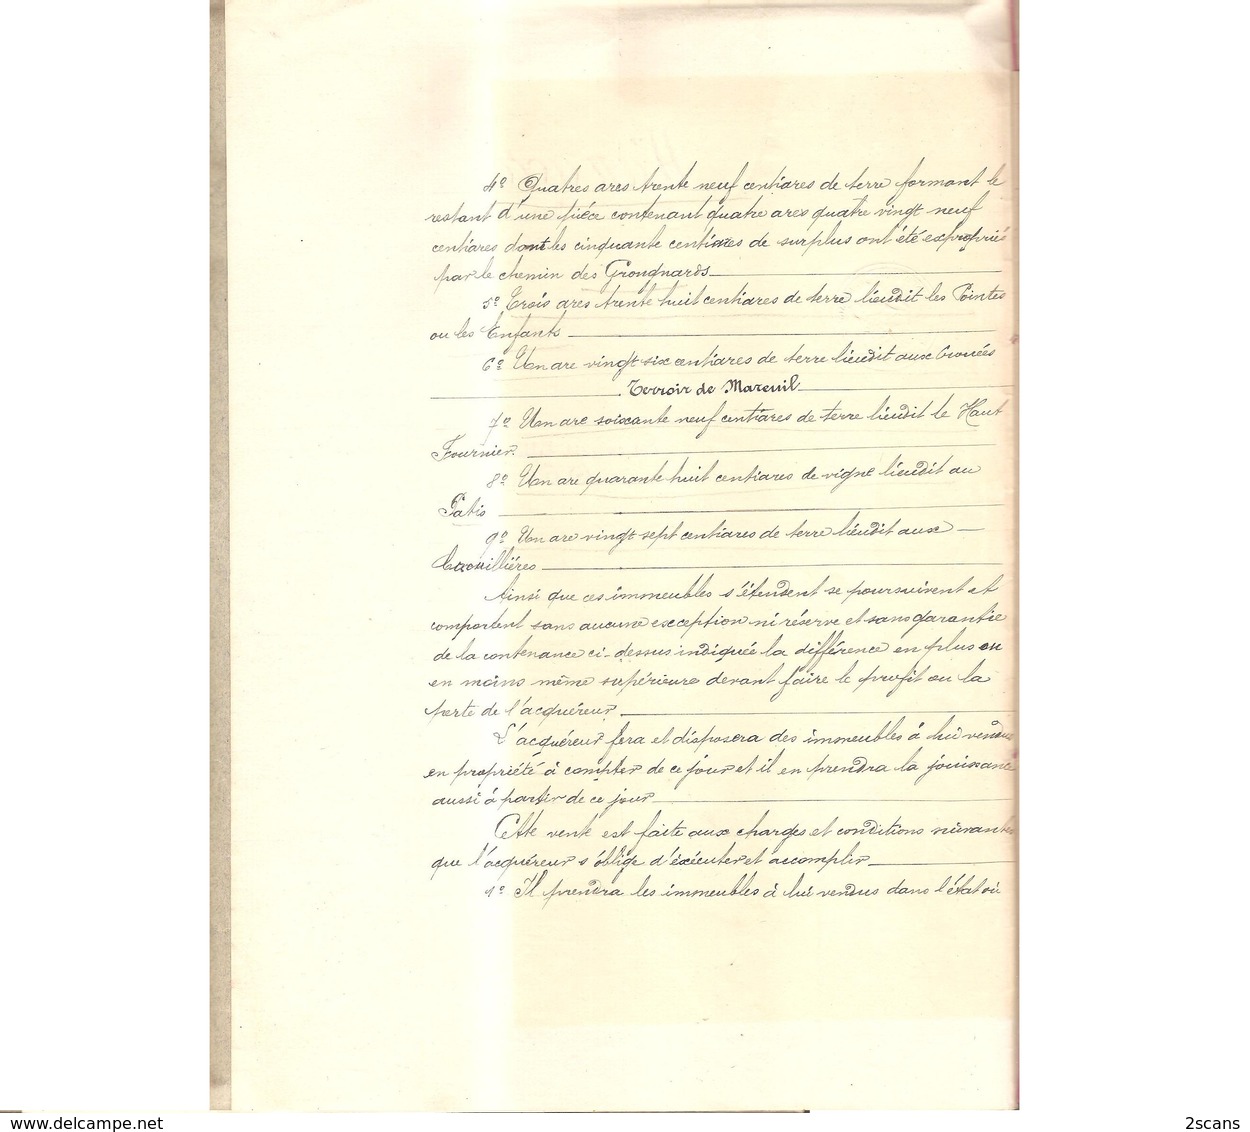 4º Quatres ares trente neuf centiares de terre formant le
restant d'une pièce contenant quatre ares quatre vingt neuf
centiares dont les cinquante centiares de surplus ont été expropriés
par le chemin des Grongnards
5º Trois ares trente huit centiares de terre lieudit les Pointes
ou les Enfants
6º Un are vingt six centiares de terre lieudit aux Crouées
Terroir de Mareuil
7º Un are soixante neuf centiares de terre lieudit le Haut
Fournier.
8º Un are quarante huit centiares de vigne lieudit au
Patis
9º Un are vingt sept centiares de terre lieudit aux
Crouillières
Ainsi que ces immeubles s'étendent se poursuivent et
comportent sans aucune exception ni réserve et sans garantie
de la contenance ci-dessus indiquée la différence en plus ou
en moins même supérieure devant faire le profit ou la
perte de l'acquéreur
L'acquéreur fera et disposera des immeubles à lui vendus
en propriété à compter de ce jour et il en prendra la jouissance
aussi à partir de ce jour
Cette vente est faite aux charges et conditions suivantes
que l'acquéreur s'oblige d'éxécuter et accomplir
1º Il prendra les immeubles à lui vendus dans l'état où
www.delcampe.net
2scans